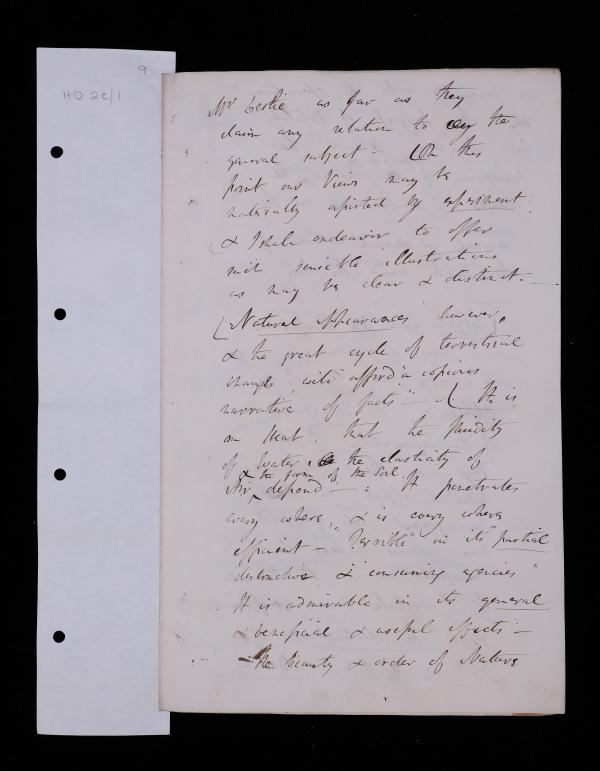 9
HD 2c/1
Mr Leslie as far as they
claim any relation to the
general subject - (On this
point our Views may be
materially assisted by experiment
& I shall endeavour to offer
such sensible illustrations
as may be clear & distinct. —
(Natural appearances however,
& the great cycle of terrestrial
changes will afford "a copious
narrative of facts" - - ( It is
on Heat, that the fluidity
of Water, the elasticity of
& the form of the Soil
Air depend - : It penetrates
every where, & is every where
efficient - "Terrible" in its "partial
destructive & consuming agencies"
It is admirable in its general
& beneficial & useful effects -
the beauty & order of Nature